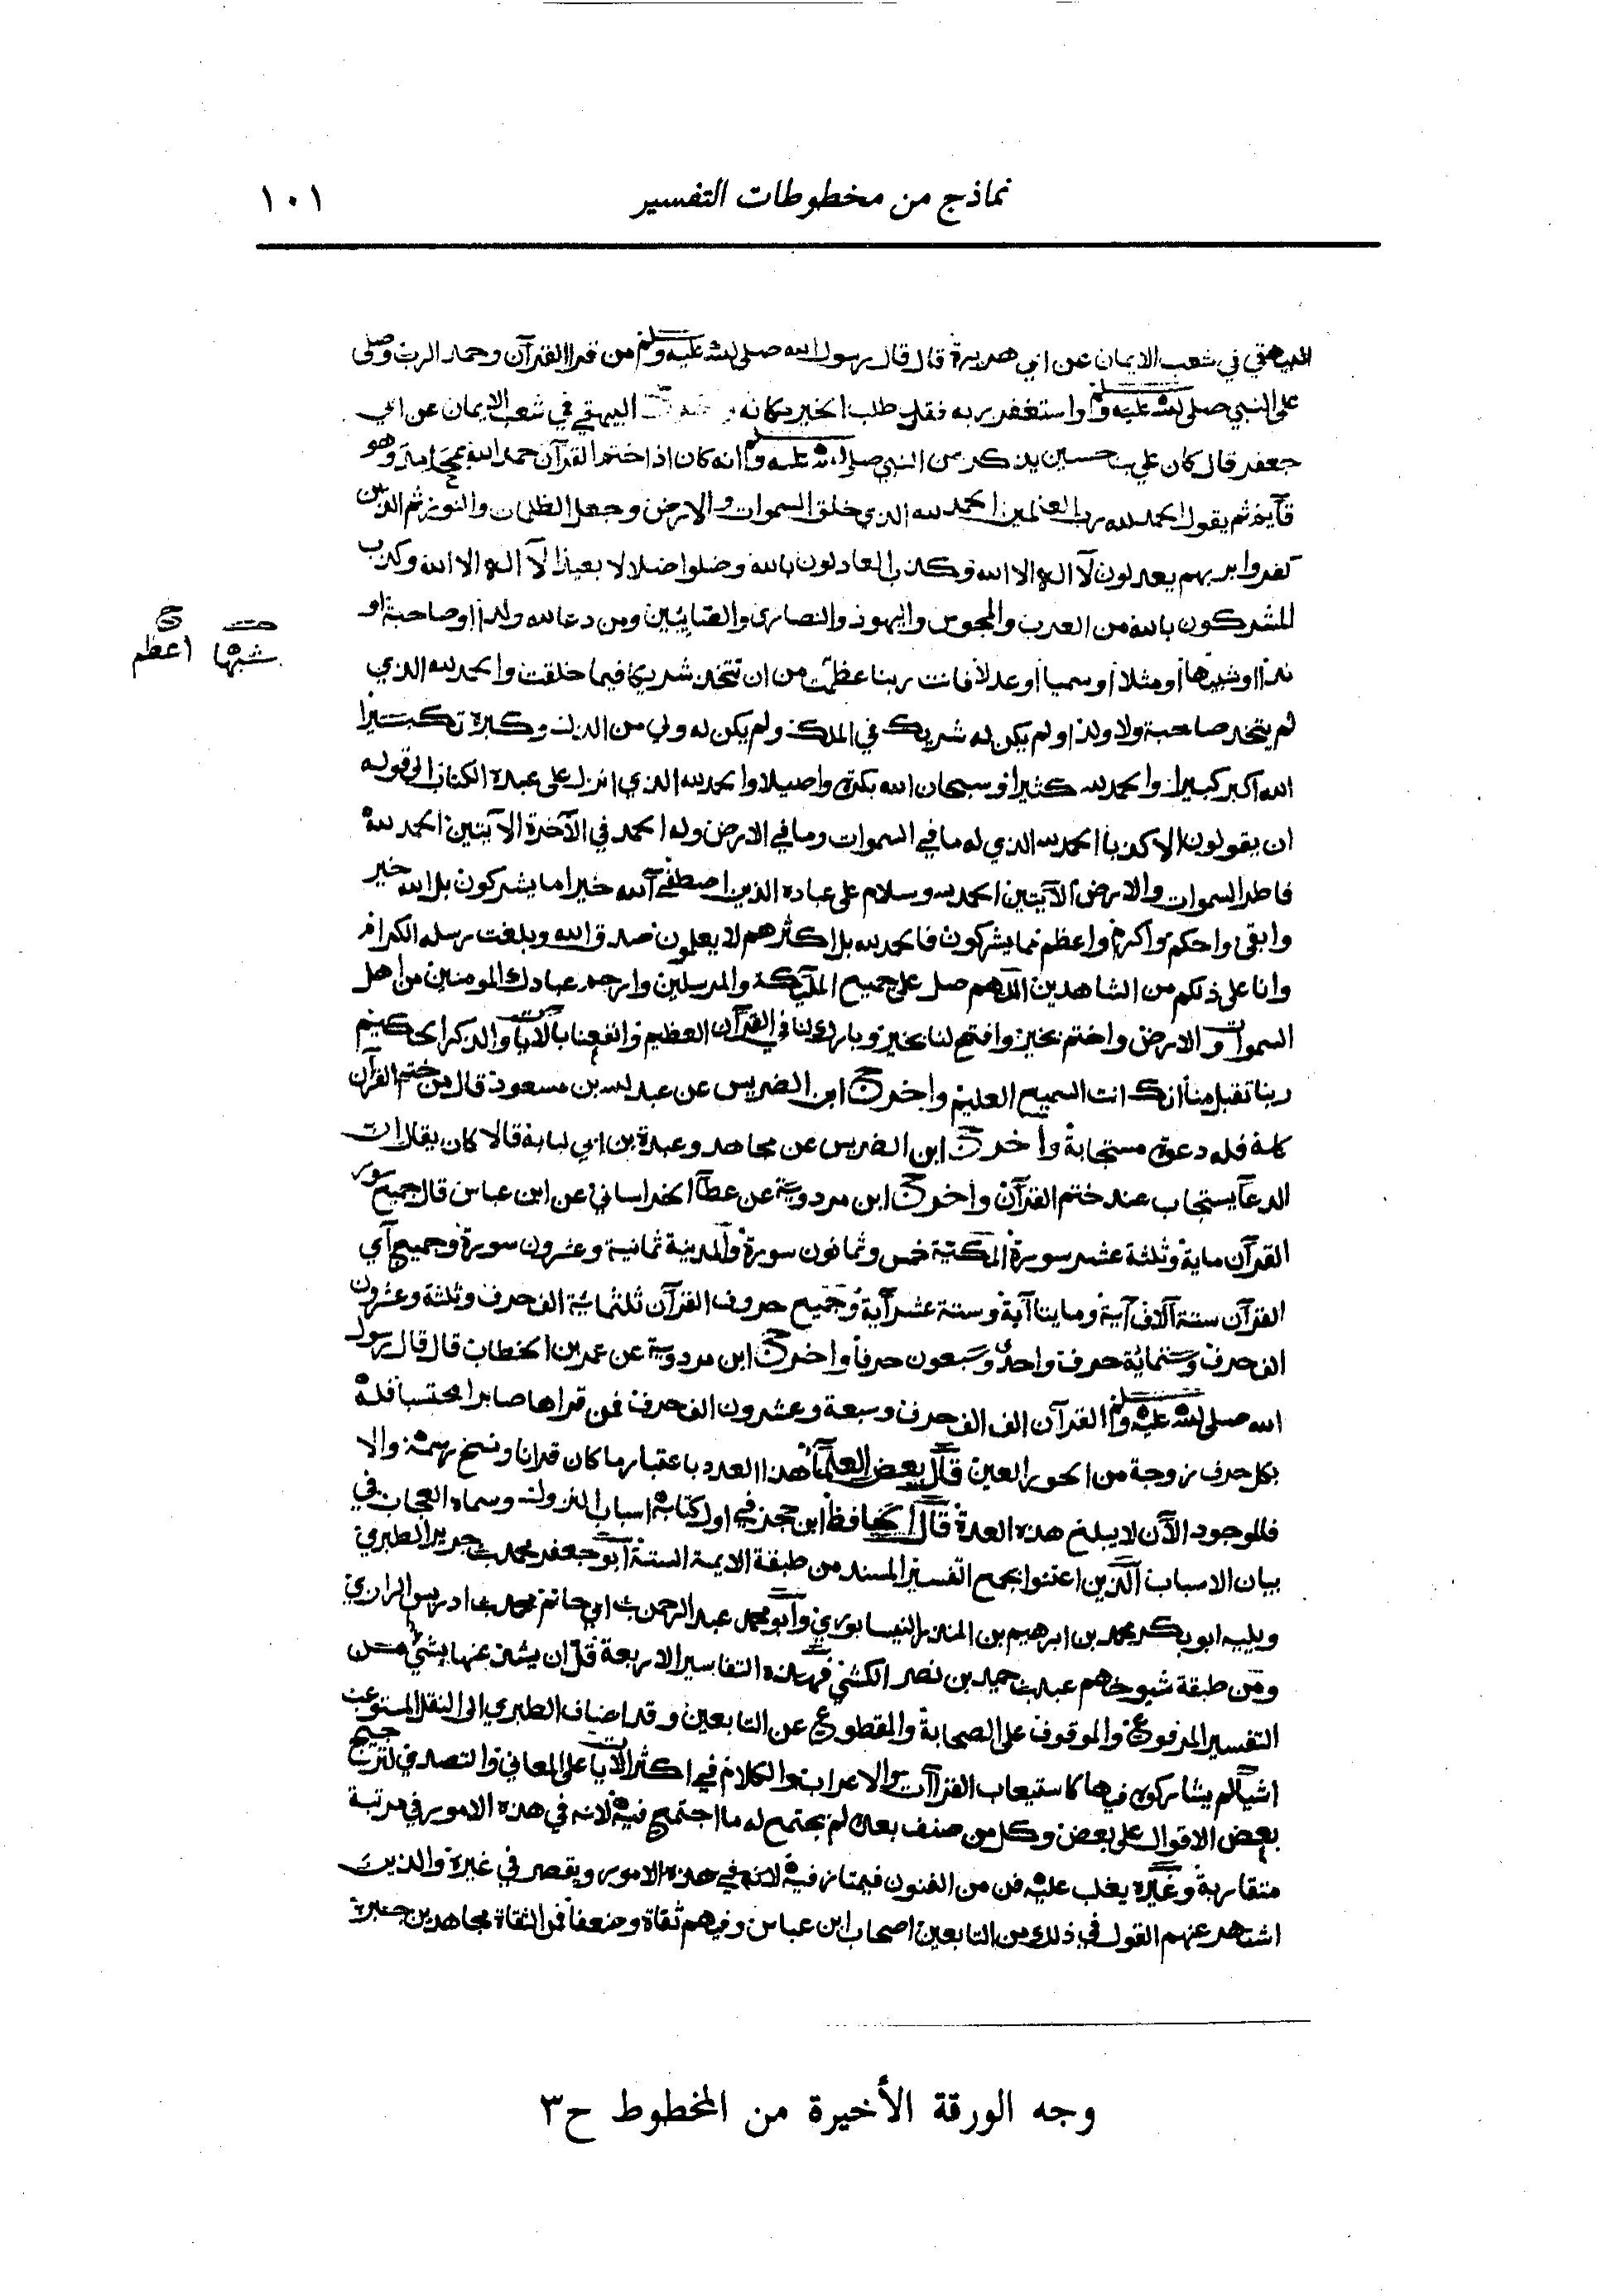 نماذج من مخطوطات التفسير ١٠١
البيهقي في شعب الايمان عن ابي هريرة قال قال رسول الله صلى الله عليه وسلم من قرا القرآن وحمد الرب وصلى
على النبي صلى الله عليه وسلم واستغفر ربه فقد طلب الخير مكانه البيهقي في شعب الايمان عن ابي
جعفر قال كان علي بن حسين يذكر عن النبي صلى الله عليه وسلم انه كان اذا ختم القرآن حمد الله بمحامد وهو
قآيم ثم يقول الحمد لله رب العلمين الحمد لله الذي خلق السموات والارض وجعل الظلمات والنور ثم الذين
كفروا بربهم يعدلون لآ اله الا الله وكذب العادلون بالله وضلوا ضلالا بعيدا لآ اله الا الله وكذب
المشركون بالله من العرب والمجوس واليهود والنصارى والصابئين ومن دعا لله ولدا او صاحبة او
ندا او شبيها او مثلا او سميا او عدلا فانت ربنا عظمت من ان تتخذ شريكا فيما خلقت والحمد لله الذي
شبيها اعظم
لم يتخذ صاحبة ولا ولدا ولم يكن له شريك في الملك ولم يكن له ولي من الذل وكبره تكبيرا
الله اكبر كبيرا والحمد لله كثيرا وسبحان الله بكرة واصيلا والحمد لله الذي انزل على عبده الكتاب الى قوله
ان يقولون الا كذبا الحمد لله الذي له ما في السموات وما في الارض وله الحمد في الآخرة الآيتين الحمد لله
فاطر السموات والارض الآيتين الحمد لله وسلام على عباده الذين اصطفى آلله خير اما يشركون بل الله خير
وابقى واحكم واكرم واعظم مما يشركون فالحمد لله بل اكثرهم لا يعلمون صدق الله وبلغت رسله الكرام
وانا على ذلكم من الشاهدين اللهم صل على جميع الملآيكة والمرسلين وارحم عبادك المومنين من اهل
السموات والارض واختم بخير وافتح لنا بخير وبارك لنا في القرآن العظيم وانفعنا بالايات والذكر الحكيم
ربنا تقبل منا انك انت السميع العليم واخرج ابن الضريس عن عبد الله بن مسعود قال من ختم القرآن
كله فله دعوة مستجابة واخرج ابن الضريس عن مجاهد وعبدة بن ابي لبابة قالا كان يقال ان
الدعآ يستجاب عند ختم القرآن واخرج ابن مردوية عن عطآ الخراساني عن ابن عباس قال جميع سور
القرآن ماية وثلثة عشر سورة المكية خمس وثمانون سورة والمدينة ثمانية وعشرون سورة وجميع آي
القرآن ستة آلاف آية ومايتا آية وستة عشر آية وجميع حروف القرآن ثلثماية الف حرف وثلثة وعشرون
الف حرف وستماية حرف واحد وسبعون حرفا واخرج ابن مردوية عن عمر بن الخطاب قال قال رسول
الله صلى الله عليه وسلم القرآن الف الف حرف وسبعة وعشرون الف حرف فمن قراها صابرا محتسبا فله
بكل حرف زوجة من الحور العين قال بعض العلمآ هذا العدد باعتبار ما كان قرانا ونسخ رسمه والا
فالموجود الآن لا يبلغ هذه العدة قال الحافظ ابن حجر في اول كتابه اسباب النزول وسماه العجاب في
بيان الاسباب الذين اعتنوا بجمع التفسير المسند من طبقة الايمة الستة ابو جعفر محمد بن جرير الطبري
ويليه ابو بكر محمد بن ابرهيم بن المنذر النيسابوري وابو محمد عبد الرحمن بن ابي حاتم محمد بن ادريس الرازي
ومن طبقة شيوخهم عبد بن حميد بن نصر الكشي فهذه التفاسير الاربعة قل ان يشذ عنها شي من
التفسير المرفوع والموقوف على الصحابة والمقطوع عن التابعين وقد اضاف الطبري الى النقل المستوعب
اشيآ لم يشاركوه فيها كاستيعاب القراآت والاعراب والكلام في اكثر الايات على المعاني والتصدي لترجيح
بعض الاقوال على بعض وكل من صنف بعده لم يجتمع له ما اجتمع فيه لانه في هذه الامور في مرتبة
متقاربة وغيره يغلب عليه فن من الفنون فيمتاز فيه لانه في هذه الامور ويقصر في غيره والذين
اشتهر عنهم القول في ذلك من التابعين اصحاب ابن عباس وفيهم ثقاة وضعفا فمن الثقاة مجاهد بن جبر
وجه الورقة الأخيرة من المخطوط ح٣